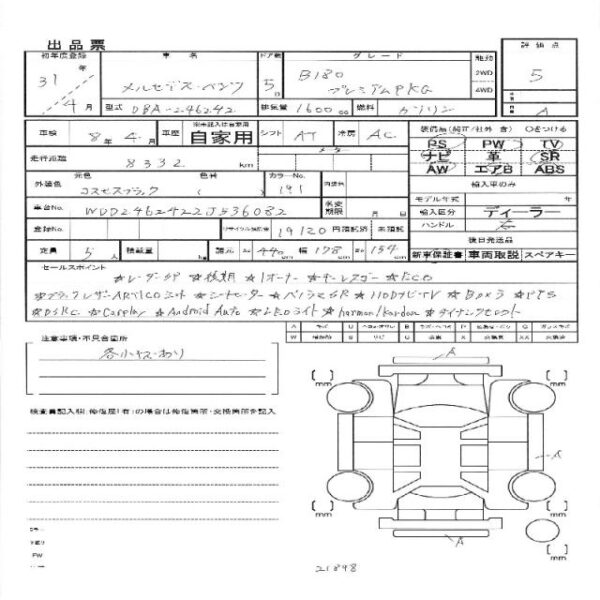 出品票
初年度登録 車名 ドア数 グレード 駆動 評価点
31年 メルセデス・ベンツ 5 B180 2WD 5
4月 プレミアムPKG 4WD
型式 DBA-246242 排気量 1600cc 燃料 ガソリン A
車検 8年4月 車歴 自家用 シフト AT 冷房 AC
装備品(純正/社外 含) ○をつける
PS PW TV
ナビ 革 SR
AW エアB ABS
走行距離 8332 km
元色 色替 カラーNo.
外装色 コスモスブラック ( ) 191
輸入車のみ
モデル年式 年
車台No. WDD2462422J536082 名変期限 月 日
輸入区分 ディーラー
ハンドル 右
登録No. リサイクル預託金 19120 円 預託済 未預託
後日発送品
定員 5人 積載量 kg 諸元 長さ 440 cm 幅 178 cm 高さ 154 cm
新車保証書 車両取説 スペアキー
セールスポイント
★レーダーSP ★後期 ★1オーナー ★キーレスゴー ★ECO
★ブラックレザーARTICOシート ★シートヒーター ★パノラマSR ★HDDナビTV ★Bカメラ ★PTS
★DSRC ★Carplay ★Android Auto ★LEDライト ★harman/kardon ★ダイナミックセレクト
注意事項・不具合箇所
各小キズあり
検査員記入欄(修復歴「有」の場合は修復箇所・交換箇所を記入)
A
mm
mm
A
mm
mm
A
21898